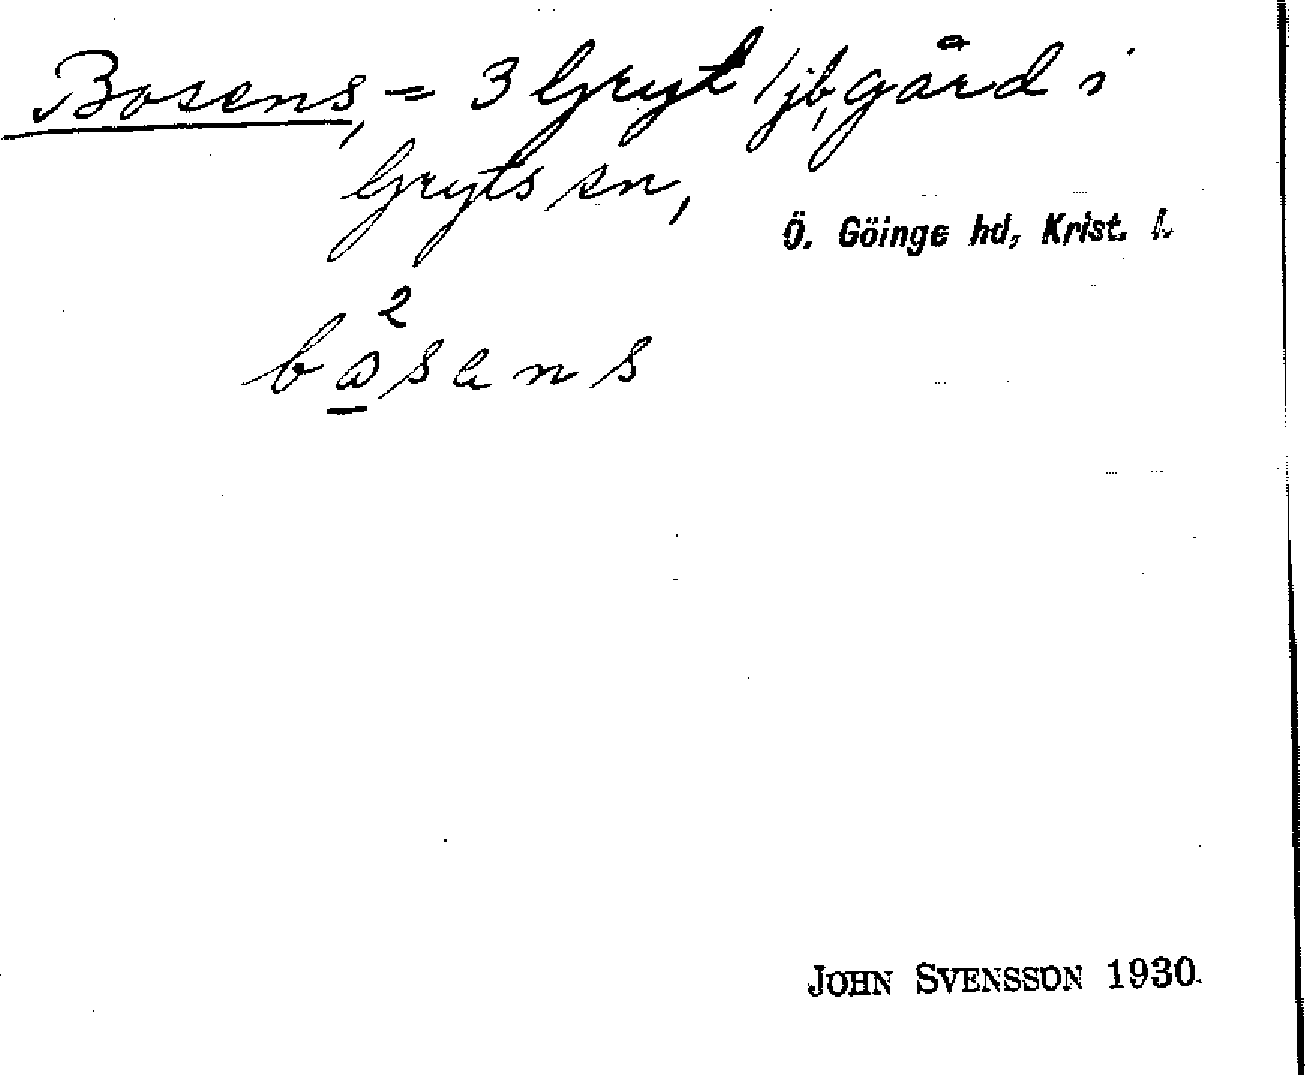 Bosens, = 3 Gryt /jb, gård i
Gryts sn,
Ö. Göinge hd, Krist. l.
2
båsans
JOHN SVENSSON 1930.